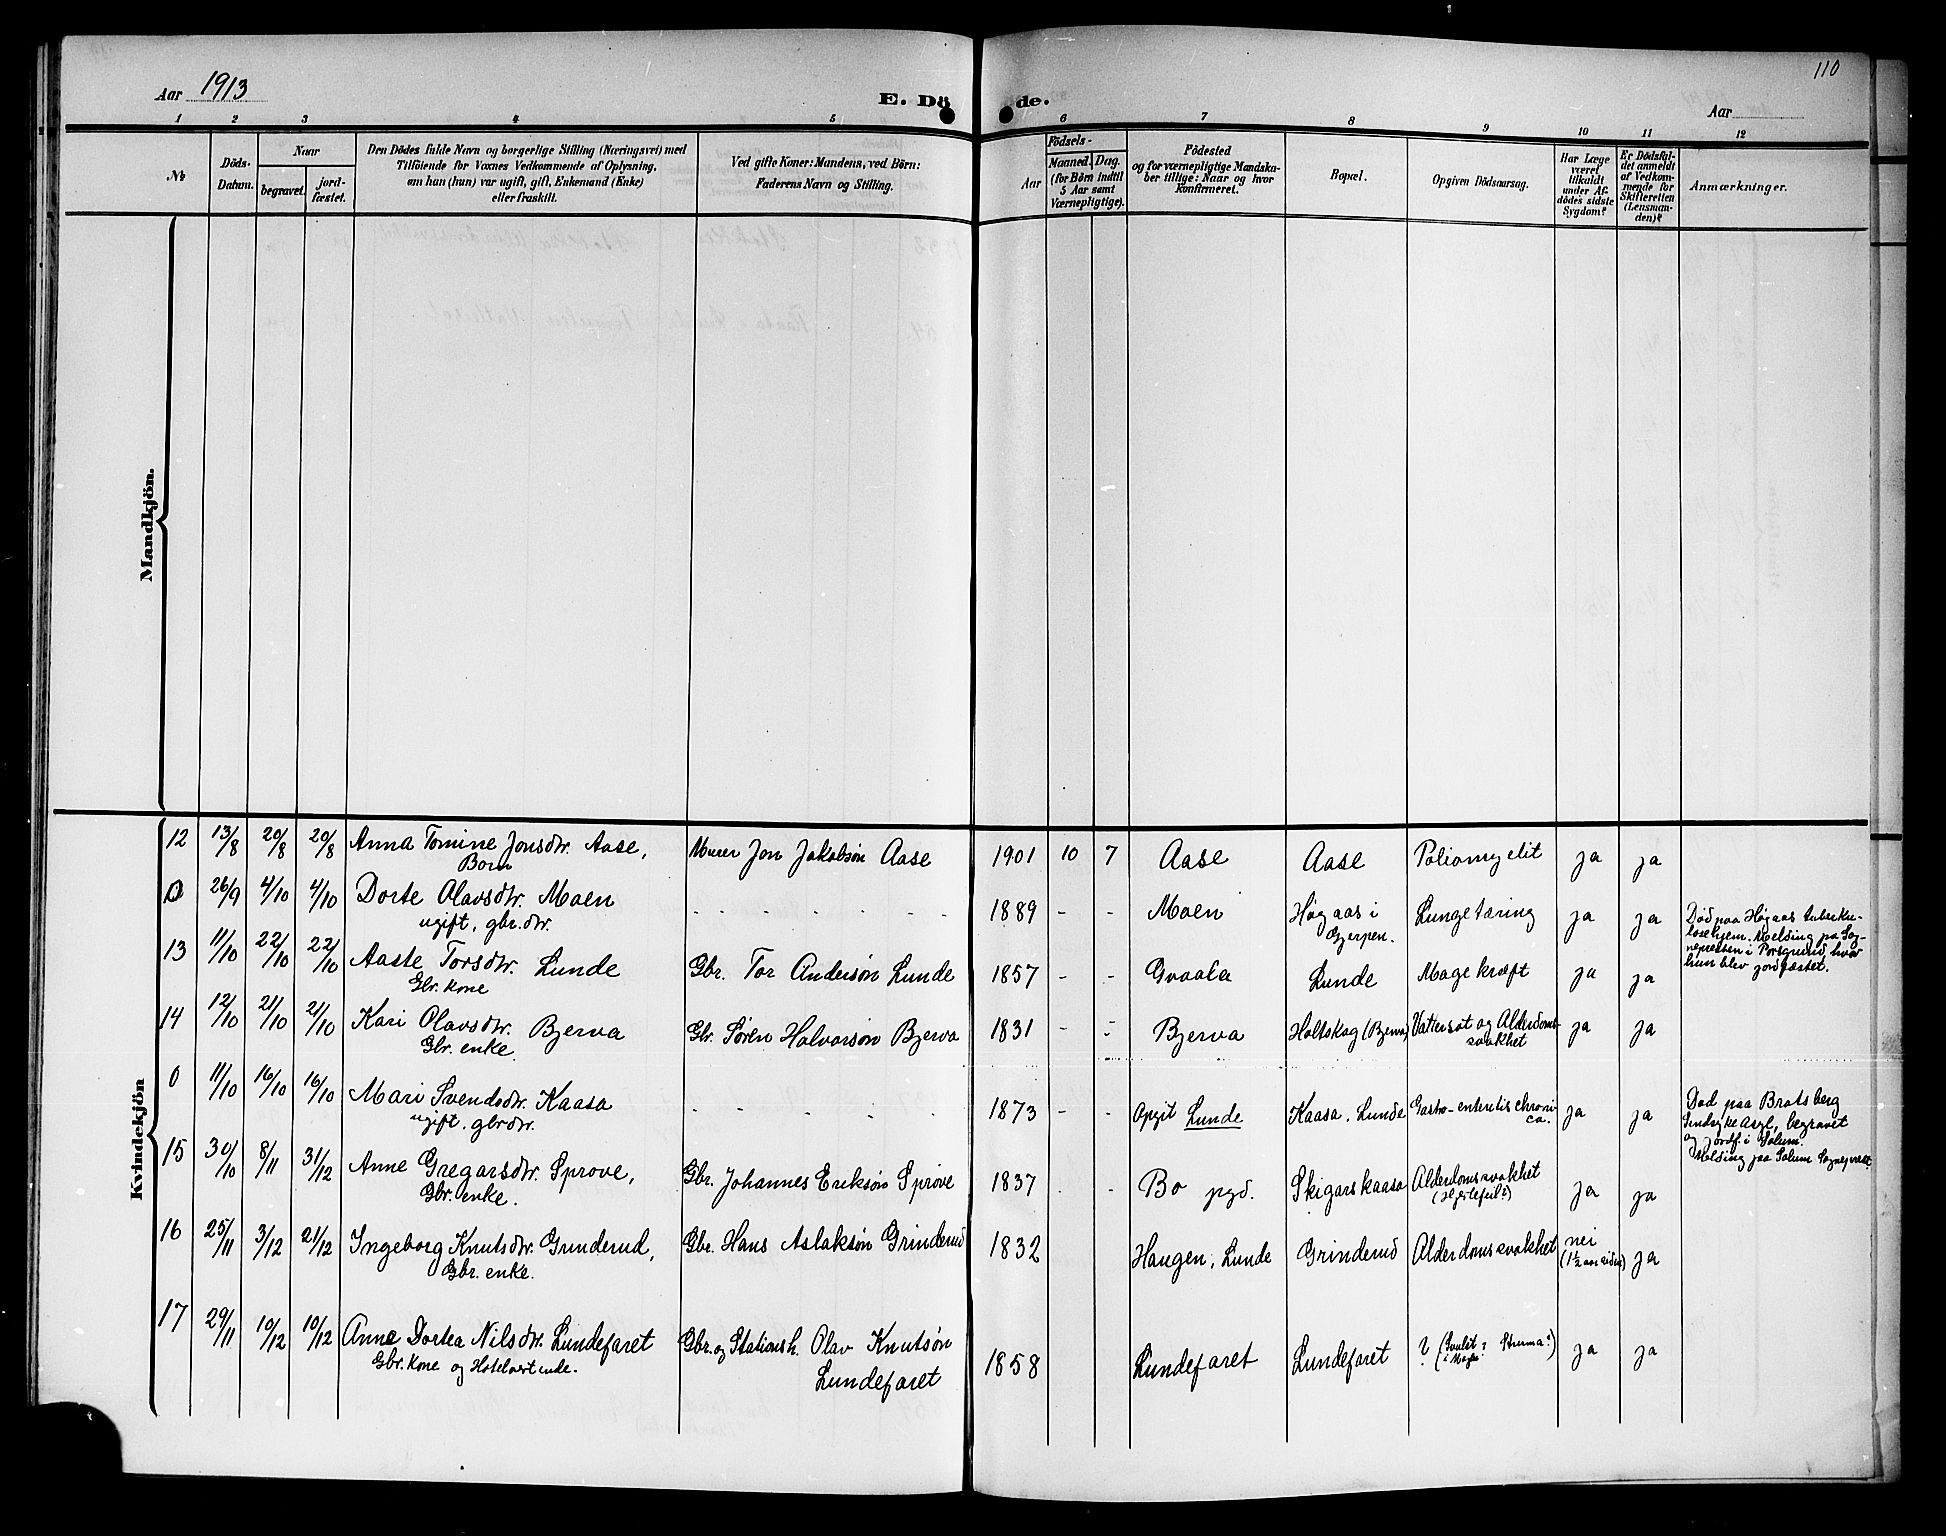 110
Aar 1913
E. Dö de.
Aar
1 2 3 4 5 6 7 8 9 10 11 12
№
Döds-Datum.
Naar
begravet.
jord-fæstet.
Den Dödes fulde Navn og borgerlige Stilling (Næringsvei) med
Tilföiende for Voxnes Vedkommende af Oplysning,
om han (hun) var ugift, gift, Enkemand (Enke)
eller fraskilt.
Ved gifte Koner: Mandens, ved Börn:
Faderens Navn og Stilling.
Födsels-
Aar
Maaned. Dag.
(for Börn indtil
5 Aar samt
Værnepligtige).
Födested
og for værnepligtige Mandska-
ber tillige: Naar og hvor
konfirmeret.
Bopæl.
Opgiven Dödsaarsag.
Har Læge
været
tilkaldt
under Af-
dödes sidste
Sygdom?
Er Dödsfal-
det anmeldt
af Vedkom-
mende for
Skifteretten
(Lensman-
den)?
Anmærkninger.
Mandkjön.
Kvindekjön
12 13/8 20/8 20/8 Anna Tomine Jonsdtr. Aase, Murer Jon Jakobsøn Aase 1901 10 7 Aase Aase Poliomyelit ja ja
Barn
0 26/9 4/10 4/10 Dorte Olavsdtr. Moen - - - - - - 1889 - - Moen Høgaas i Lungetæring ja ja
ugift, gbr.dtr. Gjerpen.
Død paa Høgaas tuberku-
losehjem. Melding paa Sog-
nepresten i Porsgrund, hvor
hun blev jordfæstet.
13 11/10 22/10 22/10 Aaste Torsdtr. Lunde Gbr. Tor Andersøn Lunde 1857 - - Gvaala Lunde Mage kræft ja ja
Gbr. kone
14 12/10 21/10 21/10 Kari Olavsdtr. Bjerva Gbr. Søren Halvorsøn Bjerva 1831 - - Bjerva Holtskog (Bjerva) Vattersot og Alderdoms- ja ja
Gbr. enke. svakhet
0 11/10 16/10 16/10 Mari Svendsdtr. Kaasa - - - - - - 1873 - - Opgit Lunde Kaasa, Lunde Gastro-enteritis chroni- ja ja
ugift. gbrdtr. ca.
Død paa Bratsberg
Sindsyke Asyl, begravet
og jordf. i Solum.
Melding paa Solum Sogneprest.
15 30/10 8/11 31/12 Anne Gregarsdtr. Sprove, Gbr. Johannes Eriksøn Sprove 1837 - - Bø pgd. Skigarskaasa Alderdomssvakhet ja ja
Gbr. enke. (Hjertefeil?)
16 25/11 3/12 21/12 Ingeborg Knutsdtr. Grinderud, Gbr. Hans Aslaksøn Grinderud 1832 Haugen, Lunde Grinderud Alderdomssvakhet nei ja
Gbr. enke. (1½ aar siden)
17 29/11 10/12 10/12 Anne Dortea Nilsdtr. Lundefaret Gbr. og Stationsh. Olav Knutsøn 1858 Lundefaret Lundefaret ? (Svulst i Magen? Struma?) ja ja
Gbr. kone og Hotelvertinde. Lundefaret